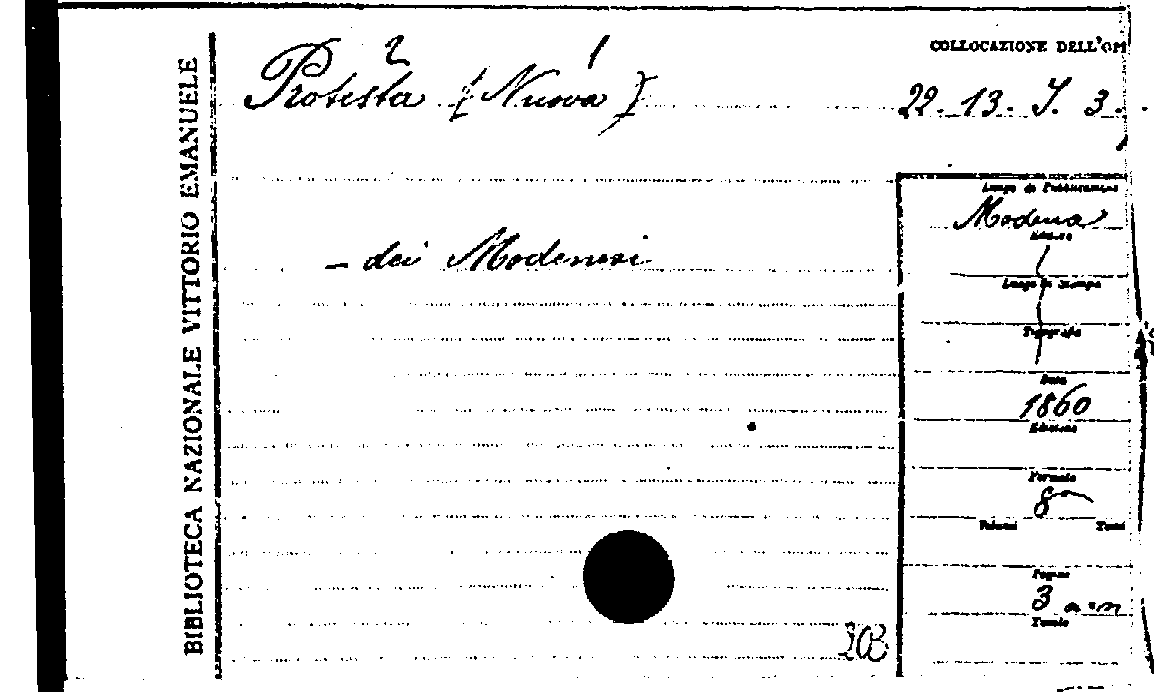 BIBLIOTECA NAZIONALE VITTORIO EMANUELE
2 1
Protesta (Nuova)
— dei Modenesi
COLLOCAZIONE DELL'OP
22. 13. J. 3.
Luogo di Pubblicazione
Modena
Editore
Luogo di Stampa
Tipografia
Data
1860
Edizione
Formato
8
Volumi Tomi
Pagine
3
Tavole